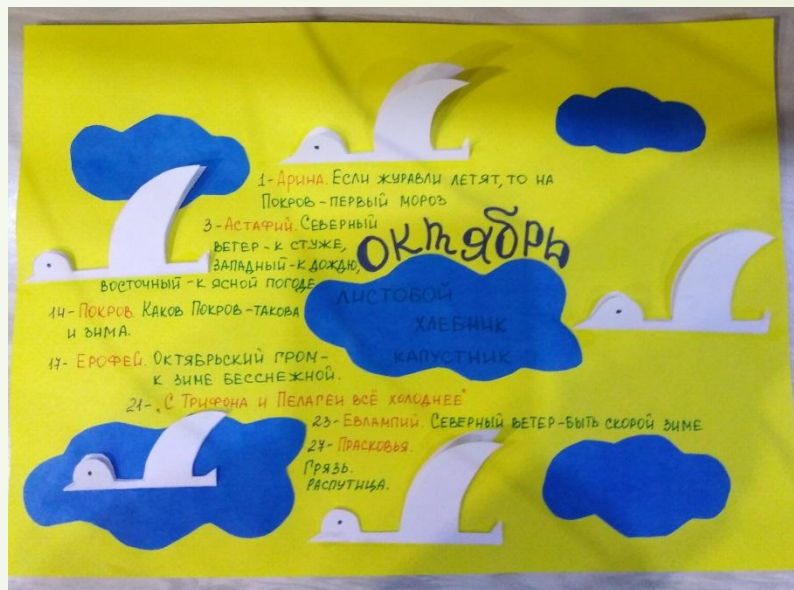 1-Арина. Если журавли летят, то на
Покров - первый мороз
3-Астафий. Северный
ветер - к стуже,
западный - к дождю,
восточный - к ясной погоде
ОКТЯБРЬ
ЛИСТОВОЙ
ХЛЕБНИК
КАПУСТНИК
14-Покров. Каков Покров-такова
и зима.
17-Ерофей. Октябрьский гром-
к зиме бесснежной.
21-"С Трифона и Пелагеи всё холоднее"
23-Евлампий. Северный ветер-быть скорой зиме
27-Прасковья.
Грязь.
Распутица.